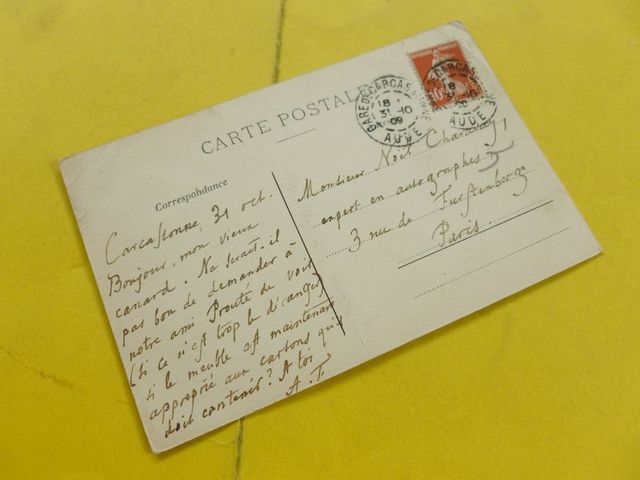 CARTE POSTALE
Correspondance
GARE DE CARCAS
18
31-10
09
AUDE
10
CARCAS
18
31
AUDE
Carcassonne, 31 oct.
Bonjour, mon vieux
canard. Ne serait-il
pas bon de demander à
notre ami Prouté de voir
(si ce n'est trop le déranger)
si le meuble est maintenant
approprié aux cartons qu'il
doit contenir? A toi
A. F.
Monsieur Noël Charavay,
expert en autographes,
3 rue de Furstenberg
Paris.